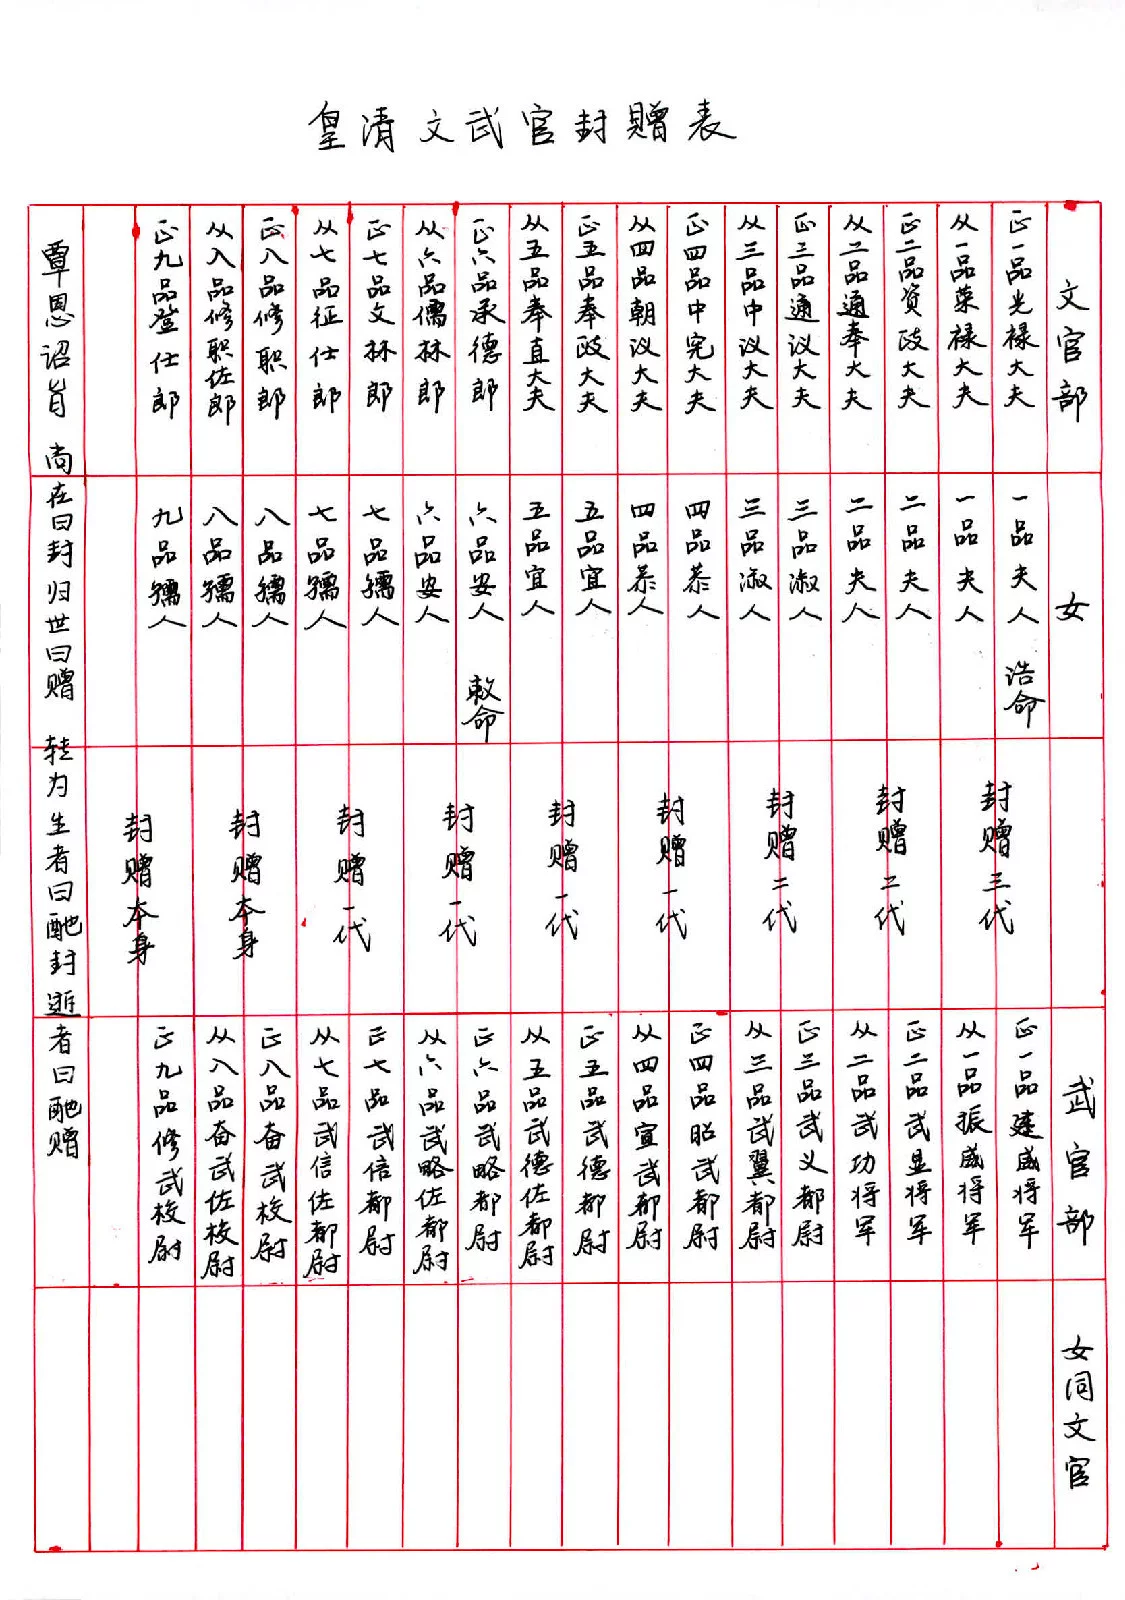 皇清文武官封赠表
文官部
正一品光禄大夫
从一品荣禄大夫
正二品资政大夫
从二品通奉大夫
正三品通议大夫
从三品中议大夫
正四品中宪大夫
从四品朝议大夫
正五品奉政大夫
从五品奉直大夫
正六品承德郎
从六品儒林郎
正七品文林郎
从七品征仕郎
正八品修职郎
从八品修职佐郎
正九品登仕郎
女
一品夫人 诰命
一品夫人
二品夫人
二品夫人
三品淑人
三品淑人
四品恭人
四品恭人
五品宜人
五品宜人
六品安人 敕命
六品安人
七品孺人
七品孺人
八品孺人
八品孺人
九品孺人
封赠三代
封赠二代
封赠二代
封赠一代
封赠一代
封赠一代
封赠一代
封赠本身
封赠本身
武官部
正一品建威将军
从一品振威将军
正二品武显将军
从二品武功将军
正三品武义都尉
从三品武翼都尉
正四品昭武都尉
从四品宣武都尉
正五品武德都尉
从五品武德佐都尉
正六品武略都尉
从六品武略佐都尉
正七品武信都尉
从七品武信佐都尉
正八品奋武校尉
从八品奋武佐校尉
正九品修武校尉
女同文官
覃恩诏旨 尚在曰封 归世曰赠 转为生者曰酏封 逝者曰酏赠